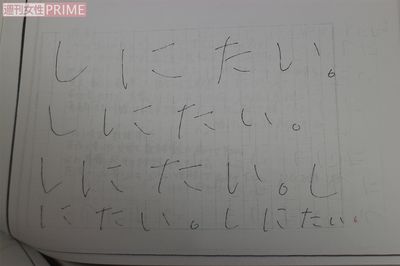 週刊女性PRIME
しにたい。
しにたい。
しにたい。し
にたい。しにたい。